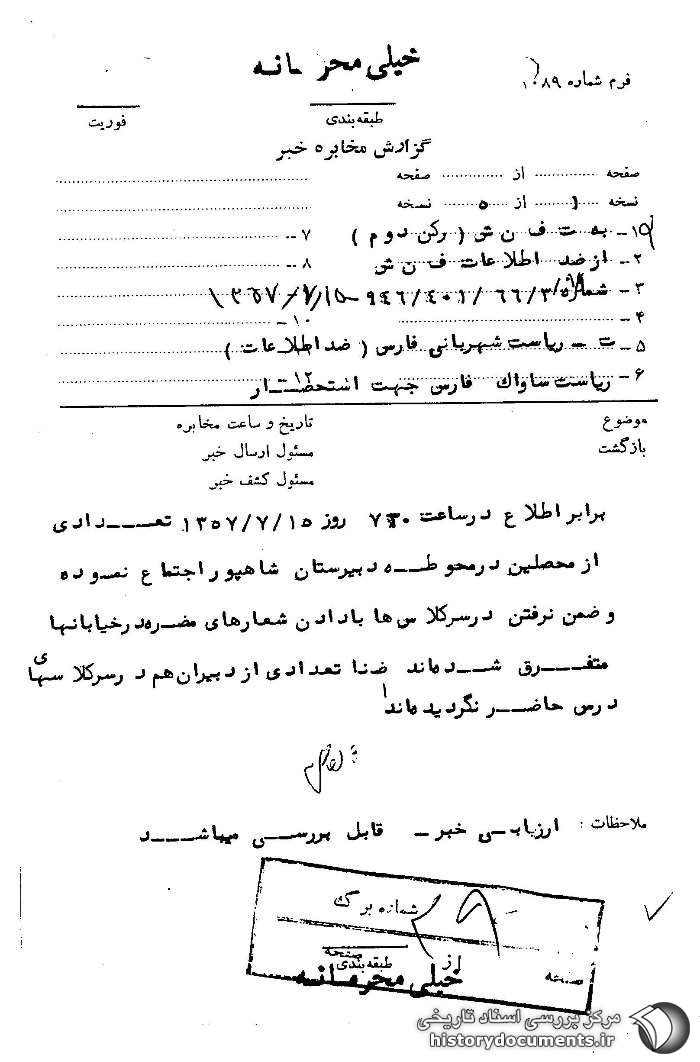 خیلی محرمانه
فرم شماره ۱۰۸۹
طبقه‌بندی
فوریت
گزارش مخابره خبر
صفحه ........ از ........ صفحه
نسخه ۱ از ۵ نسخه
۱- به ت ف ن ش ( رکن دوم ) ۷-
۲- از ضد اطلاعات ف ن ش ۸-
۳- شماره ۹۴۶/۴۰۱/۶۶/۳-۱۳۵۷/۷/۱۵
۴- ۱۰-
۵- ت - ریاست شهربانی فارس ( ضد اطلاعات )
۶- ریاست ساواک فارس جهت استحضار ۱۲
موضوع
تاریخ و ساعت مخابره
بازگشت
مسئول ارسال خبر
مسئول کشف خبر
برابر اطلاع در ساعت ۷۳۰ روز ۱۳۵۷/۷/۱۵ تعدادی
از محصلین در محوطه دبیرستان شاهپور اجتماع نموده
و ضمن نرفتن در سر کلاس‌ها با دادن شعارهای مضره در خیابانها
متفرق شده‌اند ضمنا تعدادی از دبیران هم در سر کلاسهای
درس حاضر نگردیده‌اند
ملاحظات : ارزیابی خبر - قابل بررسی میباشد
شماره برگ
صفحه
از
صفحه
طبقه‌بندی
خیلی محرمانه
مرکز بررسی اسناد تاریخی
historydocuments.ir